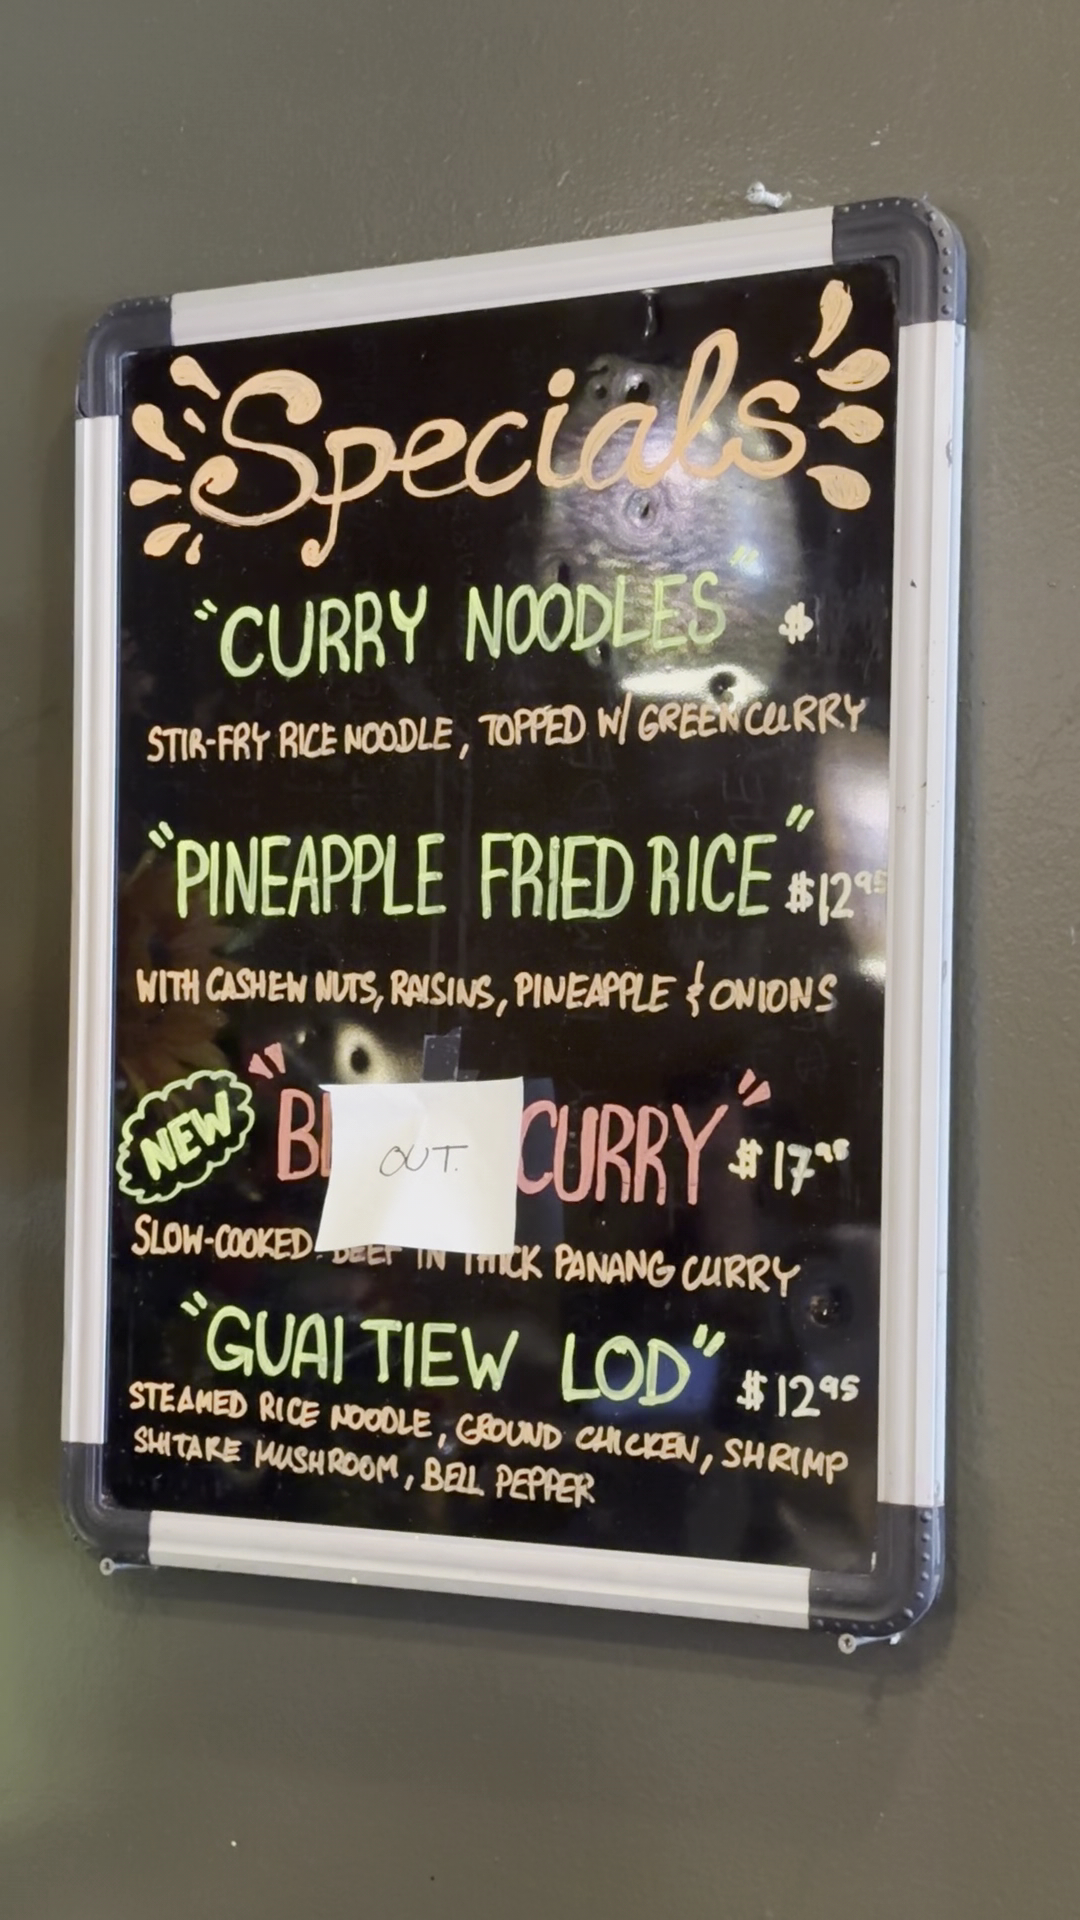 Specials
"CURRY NOODLES" $
STIR-FRY RICE NOODLE, TOPPED W/ GREEN CURRY
"PINEAPPLE FRIED RICE" $12.95
WITH CASHEW NUTS, RAISINS, PINEAPPLE & ONIONS
NEW " OUT. CURRY" $17.95
SLOW-COOKED BEEF IN THICK PANANG CURRY
"GUAI TIEW LOD" $12.95
STEAMED RICE NOODLE, GROUND CHICKEN, SHRIMP
SHITAKE MUSHROOM, BELL PEPPER